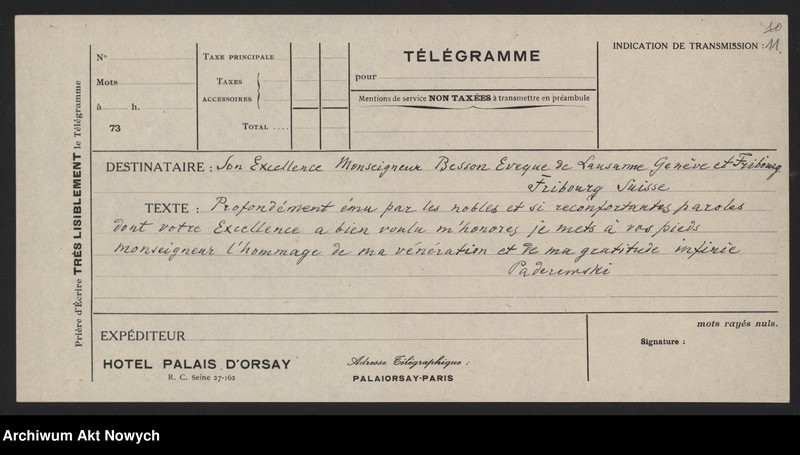 10
11.
TÉLÉGRAMME
INDICATION DE TRANSMISSION :
N°
Mots
à h.
73
TAXE PRINCIPALE
TAXES
ACCESSOIRES
TOTAL ....
pour
Mentions de service NON TAXÉES à transmettre en préambule
Prière d'Écrire TRÈS LISIBLEMENT le Télégramme
DESTINATAIRE : Son Excellence Monseigneur Besson Eveque de Lausanne Genève et Fribourg
Fribourg Suisse
TEXTE : Profondément ému par les nobles et si reconfortantes paroles
dont votre Excellence a bien voulu m'honorer je mets à vos pieds
Monseigneur l'hommage de ma vénération et de ma gratitude infinie
Paderewski
mots rayés nuls.
EXPÉDITEUR
Signature :
HOTEL PALAIS D'ORSAY
R. C. Seine 27-162
Adresse Télégraphique :
PALAIORSAY-PARIS
Archiwum Akt Nowych